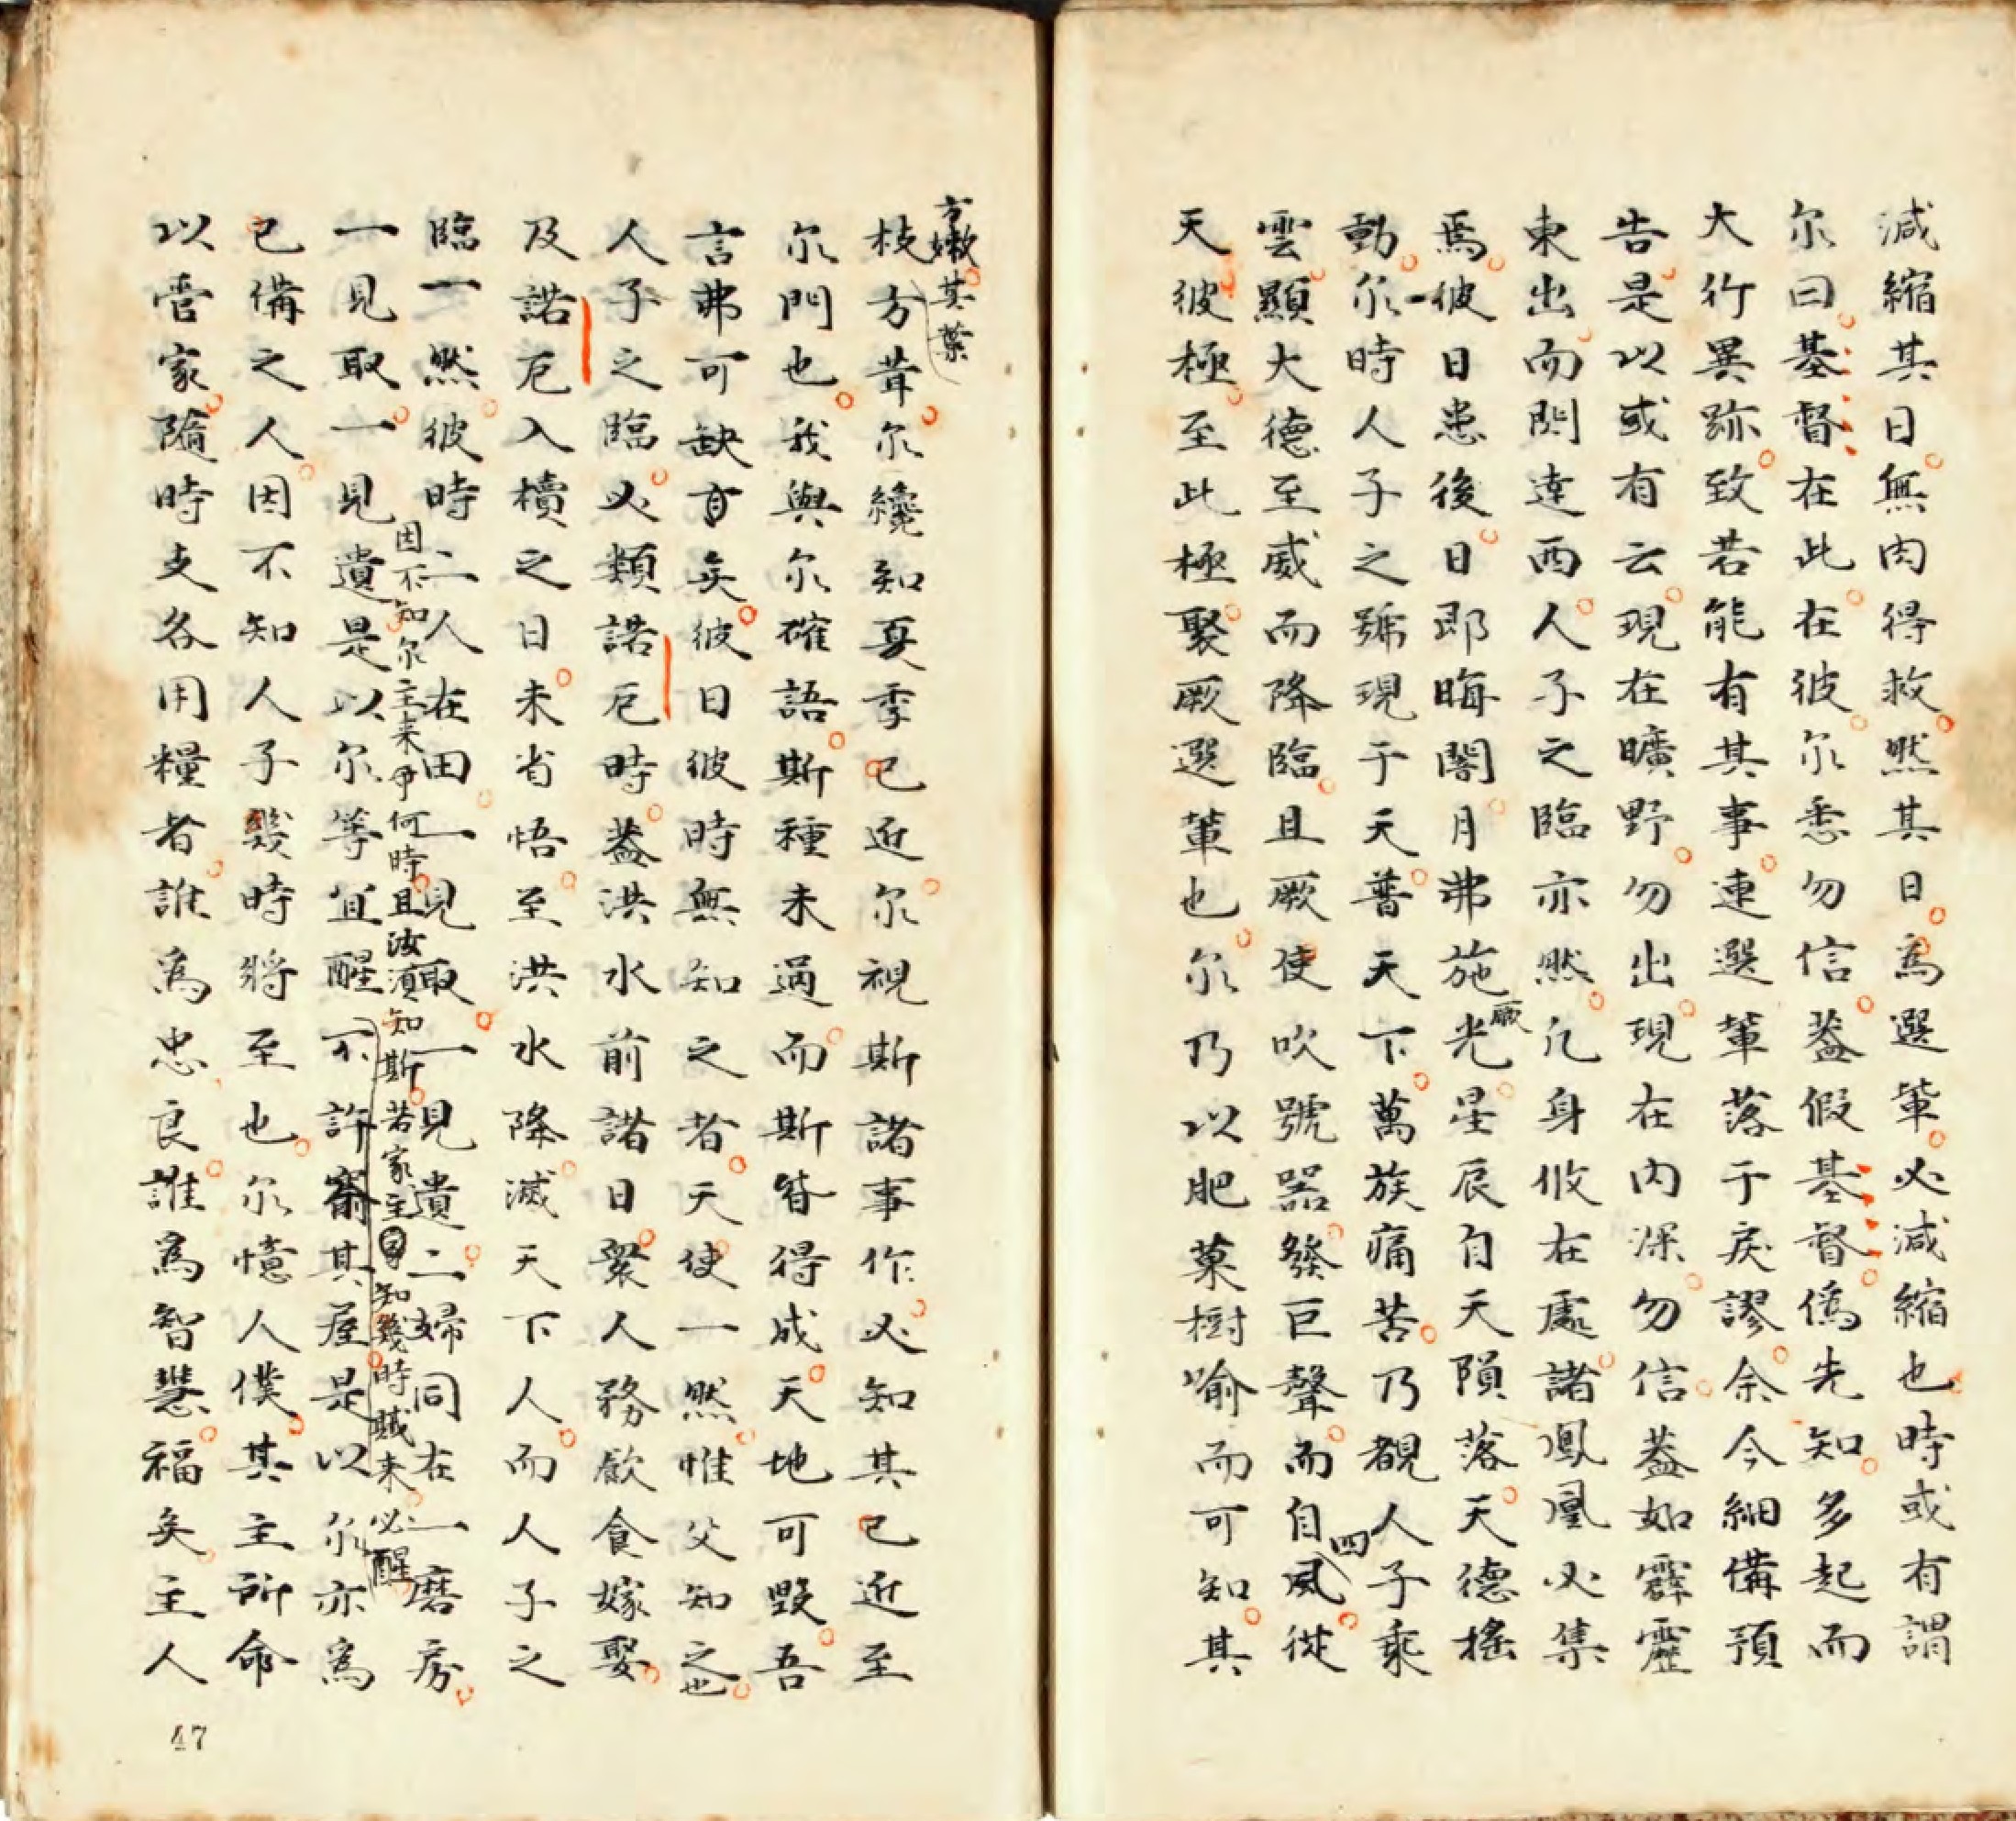 減縮其日無肉得救然其日為選輩必減縮也時或有謂
尔曰基督在此在彼尔悉勿信蓋假基督僞先知多起而
大行異跡致若能有其事連選輩落于戾謬余今細備預
告是以或有云現在曠野勿出現在內深勿信蓋如霹靂
東出而閃達西人子之臨亦然凡身攸在處諸鳳凰必集
焉彼日患後日即晦闇月弗施厥光星辰自天隕落天德搖
動尔時人子之號現于天普天下萬族痛苦乃覩人子乘
雲顯大德至威而降臨且厥使吹號器發巨聲而自四風從
天彼極至此極聚厥選輩也尔乃以肥菓樹喻而可知其
方嫩其葉
枝方茸尔纔知夏季已近尔視斯諸事作必知其已近至
尔門也我與尔確語斯種未過而斯皆得成天地可毀吾
言弗可缺有矣彼日彼時無知之者天使一然惟父知之也
人子之臨必類諾厄時蓋洪水前諸日衆人務飲食嫁娶
及諾厄入櫝之日未省悟至洪水降滅天下人而人子之
臨一然彼時二人在田一見取一見遺二婦同在一磨房
因不知尔主来伊何時且汝須知斯若家主知幾時賊来必醒
一見取一見遺是以尔等宜醒不許窬其屋是以尔亦為
已備之人因不知人子幾時將至也尔憶人僕其主所命
以管家隨時支各用糧者誰為忠良誰為智慧福矣主人
47